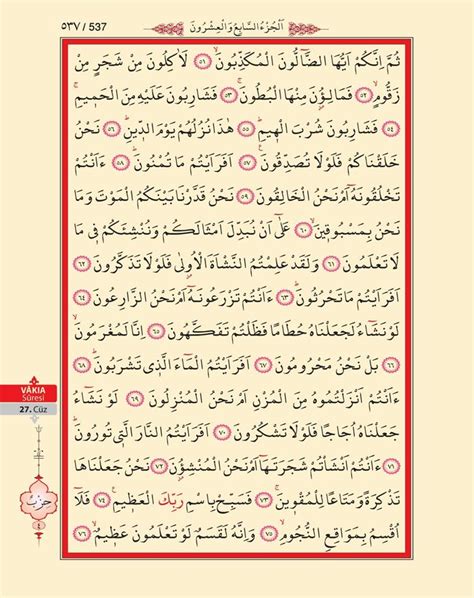 ٥٣٧ / 537
اَلْجُزْءُ السَّابِعُ وَالْعِشْرُونَ
ثُمَّ اِنَّكُمْ اَيُّهَا الضَّٓالُّونَ الْمُكَذِّبُونَۙ ﴿٥١﴾ لَاٰكِلُونَ مِنْ شَجَرٍ مِنْ
زَقُّومٍۙ ﴿٥٢﴾ فَمَالِؤُ۫نَ مِنْهَا الْبُطُونَۚ ﴿٥٣﴾ فَشَارِبُونَ عَلَيْهِ مِنَ الْحَم۪يمِۚ
﴿٥٤﴾ فَشَارِبُونَ شُرْبَ الْه۪يمِۜ ﴿٥٥﴾ هٰذَا نُزُلُهُمْ يَوْمَ الدّ۪ينِۜ ﴿٥٦﴾ نَحْنُ
خَلَقْنَاكُمْ فَلَوْلَا تُصَدِّقُونَ ﴿٥٧﴾ اَفَرَاَيْتُمْ مَا تُمْنُونَۜ ﴿٥٨﴾ ءَاَنْتُمْ
تَخْلُقُونَهُٓ اَمْ نَحْنُ الْخَالِقُونَ ﴿٥٩﴾ نَحْنُ قَدَّرْنَا بَيْنَكُمُ الْمَوْتَ وَمَا
نَحْنُ بِمَسْبُوق۪ينَۙ ﴿٦٠﴾ عَلٰٓى اَنْ نُبَدِّلَ اَمْثَالَكُمْ وَنُنْشِئَكُمْ ف۪ي مَا
لَا تَعْلَمُونَ ﴿٦١﴾ وَلَقَدْ عَلِمْتُمُ النَّشْاَةَ الْاُو۫لٰى فَلَوْلَا تَذَكَّرُونَ ﴿٦٢﴾
اَفَرَاَيْتُمْ مَا تَحْرُثُونَۜ ﴿٦٣﴾ ءَاَنْتُمْ تَزْرَعُونَهُٓ اَمْ نَحْنُ الزَّارِعُونَ ﴿٦٤﴾
لَوْ نَشَٓاءُ لَجَعَلْنَاهُ حُطَامًا فَظَلْتُمْ تَفَكَّهُونَ ﴿٦٥﴾ اِنَّا لَمُغْرَمُونَۙ
﴿٦٦﴾ بَلْ نَحْنُ مَحْرُومُونَ ﴿٦٧﴾ اَفَرَاَيْتُمُ الْمَٓاءَ الَّذ۪ي تَشْرَبُونَۜ ﴿٦٨﴾
ءَاَنْتُمْ اَنْزَلْتُمُوهُ مِنَ الْمُزْنِ اَمْ نَحْنُ الْمُنْزِلُونَ ﴿٦٩﴾ لَوْ نَشَٓاءُ
جَعَلْنَاهُ اُجَاجًا فَلَوْلَا تَشْكُرُونَ ﴿٧٠﴾ اَفَرَاَيْتُمُ النَّارَ الَّت۪ي تُورُونَۜ
﴿٧١﴾ ءَاَنْتُمْ اَنْشَأْتُمْ شَجَرَتَهَٓا اَمْ نَحْنُ الْمُنْشِؤُ۫نَ ﴿٧٢﴾ نَحْنُ جَعَلْنَاهَا
تَذْكِرَةً وَمَتَاعًا لِلْمُقْو۪ينَۚ ﴿٧٣﴾ فَسَبِّحْ بِاسْمِ رَبِّكَ الْعَظ۪يمِ ﴿٧٤﴾ فَلَٓا
اُقْسِمُ بِمَوَاقِعِ النُّجُومِۙ ﴿٧٥﴾ وَاِنَّهُ لَقَسَمٌ لَوْ تَعْلَمُونَ عَظ۪يمٌۙ ﴿٧٦﴾
VÂKIA
Sûresi
27. Cüz
حزب
٤